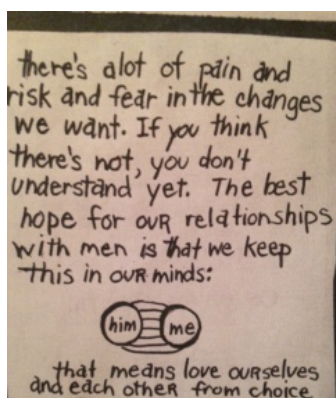 there's alot of pain and
risk and fear in the changes
we want. If you think
there's not, you don't
understand yet. The best
hope for our relationships
with men is that we keep
this in our minds:
him me
that means love ourselves
and each other from choice